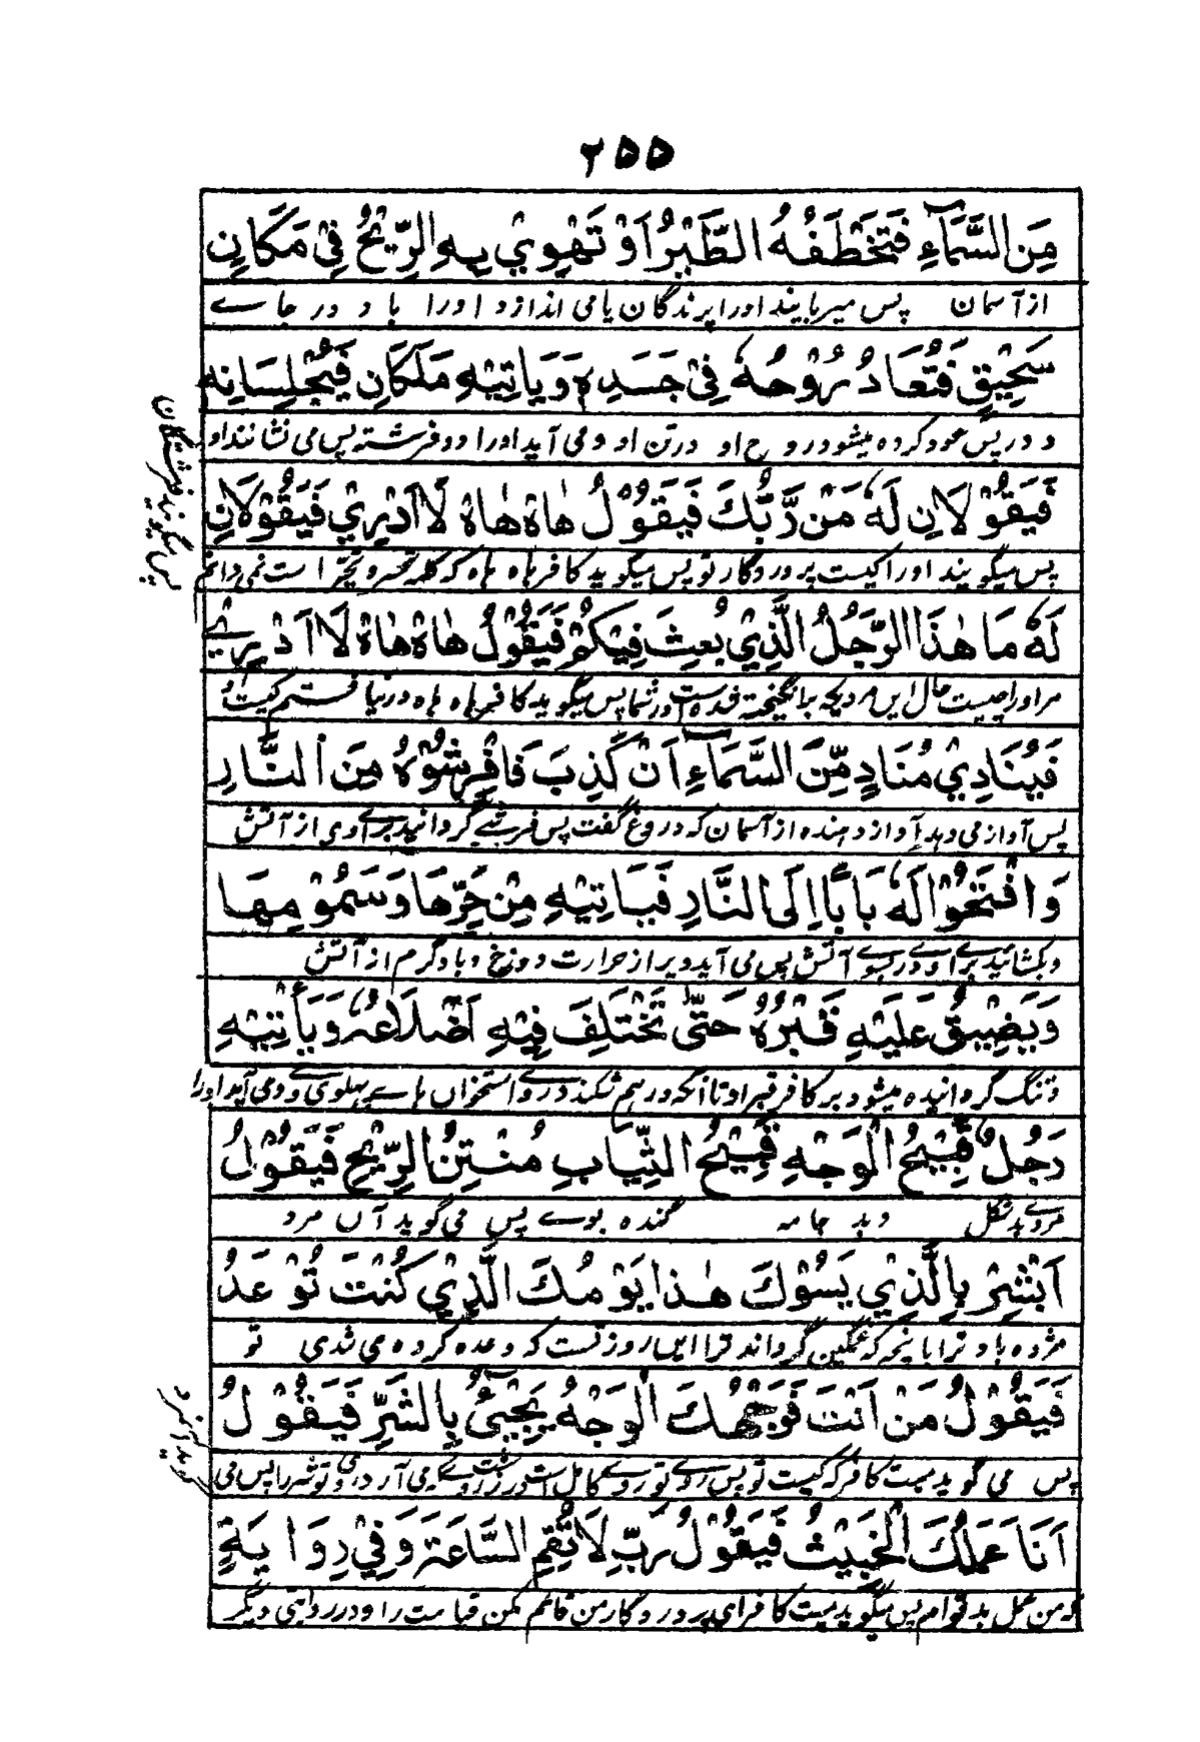 ۲۵۵
مِنَ السَّمَآءِ فَتَخْطَفُهُ الطَّيْرُ اَوْ تَهْوِيْ بِهِ الرِّيْحُ فِيْ مَكَانٍ
از آسمان پس میربایند اورا پرندگان یا می اندازد اورا باد در جاے
سَحِيْقٍ فَتُعَادُ رُوْحُهٗ فِيْ جَسَدِهٖ وَيَاتِيْهِ مَلَكَانِ فَيُجْلِسَانِهٖ
دور پس عود کرده میشود روح او در تن او و می آید اورا دو فرشته پس می نشانند او
فَيَقُوْلَانِ لَهٗ مَنْ رَّبُّكَ فَيَقُوْلُ هَاهْ هَاهْ لَا اَدْرِيْ فَيَقُوْلَانِ
پس میگویند فرشتگان
پس میگویند اورا کیست پروردگار تو پس میگوید کافر هاه هاه که کلمه تحسر و تحیر است نمی دانم
لَهٗ مَا هٰذَا الرَّجُلُ الَّذِيْ بُعِثَ فِيْكُمْ فَيَقُوْلُ هَاهْ هَاهْ لَا اَدْرِيْ
مر اورا چیست حال این مردیکه برانگیخته شده است در شما پس میگوید کافر هاه هاه در نیافتم کیست او
فَيُنَادِيْ مُنَادٍ مِّنَ السَّمَآءِ اَنْ كَذِبَ فَافْرِشُوْهُ مِنَ النَّارِ
پس آواز می دهد آواز دهنده از آسمان که دروغ گفت پس فرشے گردانید براے وی از آتش
وَافْتَحُوْا لَهٗ بَابًا اِلَى النَّارِ فَيَاتِيْهِ مِنْ حَرِّهَا وَسَمُوْمِهَا
و بکشائید براے او درے بسوے آتش پس می آید ویرا از حرارت دوزخ و باد گرم از آتش
وَيَضِيْقُ عَلَيْهِ قَبْرُهٗ حَتّٰى تَخْتَلِفَ فِيْهِ اَضْلَاعُهٗ وَيَأْتِيْهِ
و تنگ گردانیده میشود بر کافر قبر او تا آنکه در هم شکند دروے استخوان هاے پهلوی وے و می آید اورا
رَجُلٌ قَبِيْحُ الْوَجْهِ قَبِيْحُ الثِّيَابِ مُنْتِنُ الرِّيْحِ فَيَقُوْلُ
مردے بد شکل و بد جامه گنده بوے پس می گوید آں مرد
اَبْشِرْ بِالَّذِيْ يَسُوْكَ هٰذَا يَوْمُكَ الَّذِيْ كُنْتَ تُوْعَدُ
مژده باد ترا بانچه که غمگین گرداند ترا ایں روز تست که وعده کرده می شدی تو
فَيَقُوْلُ مَنْ اَنْتَ فَوَجْهُكَ الْوَجْهُ يَجِيْئُ بِالشَّرِّ فَيَقُوْلُ
پس می گوید میت کافر که کیست تو پس روے تو روے کامل است در زشت روے می آرد بدی و توشه را پس می
گوید آنمرد
اَنَا عَمَلُكَ الْخَبِيْثُ فَيَقُوْلُ رَبِّ لَا تُقِمِ السَّاعَةَ وَفِيْ رِوَايَةٍ
من عمل بد توام پس میگوید میت کافر ای پروردگار من قائم مکن قیامت را و در روایتی دیگر